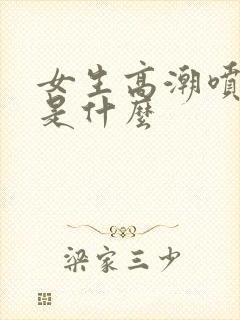 女生高潮噴
是什麼
梁家三少